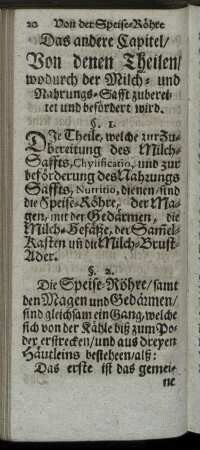 20 Von der Speise-Röhre
Das andere Capitel/
Von denen Theilen/
wodurch der Milch- und
Nahrungs-Safft zuberei-
tet und befördert wird.
§. 1.
DIe Theile, welche zur Zu-
bereitung des Milch-
Saffts, Chylificatio, und zur
beförderung des Nahrungs
Saffts, Nutritio, dienen/sind
die Speise-Röhre, der Ma-
gen, mit der Gedärmen, die
Milch-Gefässe, der Sam̃el-
Kasten uñ die Milch-Brust-
Ader.
§. 2.
Die Speise-Röhre/samt
den Magen und Gedärmen/
sind gleichsam ein Gang, welche
sich von der Kähle biß zum Po-
dex erstrecken/und aus dreyen
Häutleins besteheen/alß:
Das erste ist das gemei-
ne